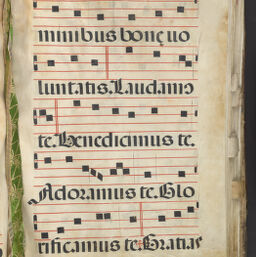 minibus bonę uo
luntatis. Laudamꝰ
te. Benedicimus te.
Adoramus te. Glo
rificamus te. Gratias